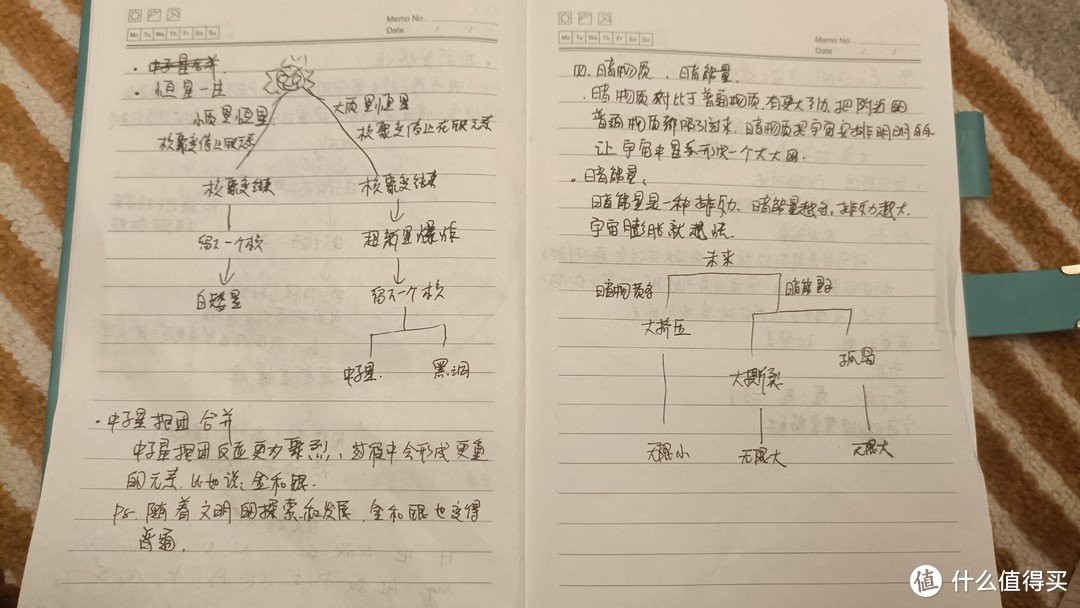 Memo No.
Mo Tu We Th Fr Sa Su
Date / /
· 中子星合并
· 恒星一生
小质量恒星
核聚变停止碳元素
大质量恒星
核聚变停止在铁元素
核聚变结束
核聚变结束
留下一个核
超新星爆炸
白矮星
留下一个核
中子星
黑洞
· 中子星抱团合并
中子星抱团反应更为聚烈，过程中会形成更重
的元素，比如说：金和银.
Ps. 随着文明的探索和发展，金和银也变得
普通。
Memo No.
Mo Tu We Th Fr Sa Su
Date / /
四、暗物质、暗能量.
· 暗物质对比于普通物质，有更大引力，把附近的
普通物质都吸引过来，暗物质把宇宙安排明明白白
让宇宙中星系形成一个大大网.
· 暗能量、
暗能量是一种排斥力、暗能量越多，排斥力越大，
宇宙膨胀就越快
未来
暗物质多
暗能量多
大挤压
大撕裂
孤岛
无限小
无限大
无限大
值 什么值得买